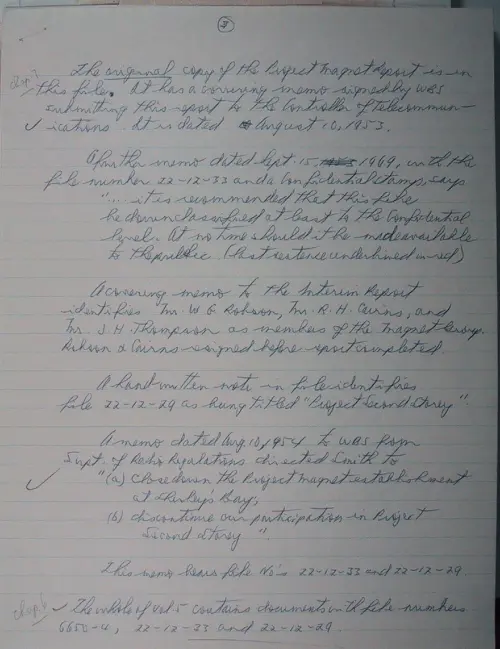 5
Chap 3
The original copy of the Project Magnet Report is in
this file. It has a covering memo signed by WBS
submitting this report to the Controller of Telecommun-
ications. It is dated August 10, 1953.
A further memo dated Sept. 15, 1969, with the
file number 22-12-33 and a Confidential stamp, says
"... it is recommended that this file
be downclassified at least to the Confidential
level. At no time should it be made available
to the public. (last sentence underlined in red)
A covering memo to the Interim Report
identifies Mr. W G. Robson, Mr. R. H. Cairns, and
Mr. J H. Thompson as members of the Magnet Group.
Robson & Cairns resigned before report completed.
A hand written note in file identifies
file 22-12-29 as being titled "Project Second Storey".
A memo dated Aug. 10, 1954 to WBS from
Supt. of Radio Regulations directed Smith to
"(a) close down the Project Magnet establishment
at Shirley's Bay,
(b) discontinue our participation in Project
Second Storey ".
This memo bears file No's 22-12-33 and 22-12-29.
Chap 6
The whole of vol 5 contains documents with file numbers
6650-4, 22-12-33 and 22-12-29.